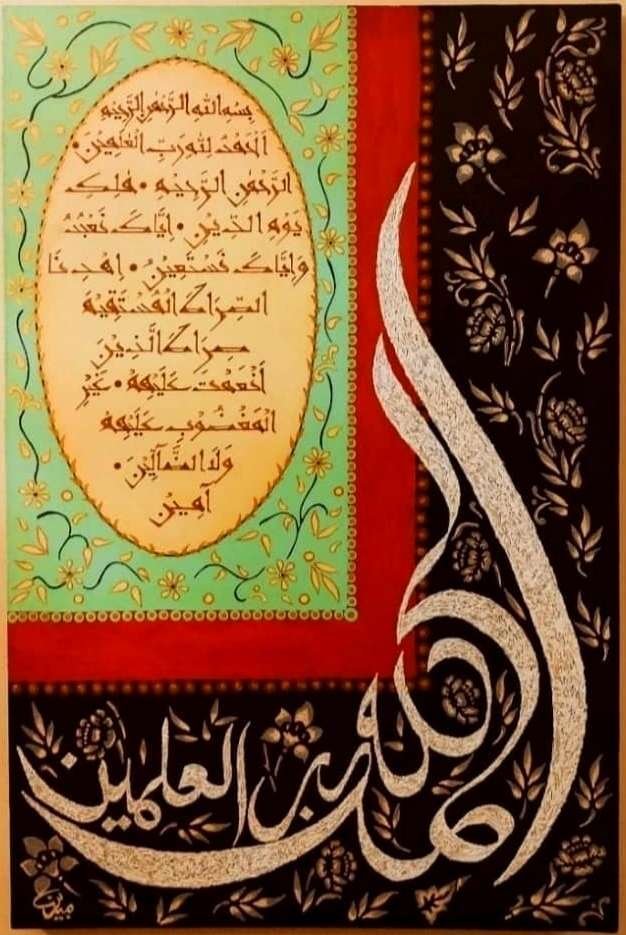 بِسْمِ اللَّهِ الرَّحْمَٰنِ الرَّحِيمِ
الْحَمْدُ لِلَّهِ رَبِّ الْعَلَمِينَ •
الرَّحْمَٰنِ الرَّحِيمِ • مَلِكِ
يَوْمِ الدِّينِ • إِيَّاكَ نَعْبُدُ
وَإِيَّاكَ نَسْتَعِينُ • اهْدِنَا
الصِّرَاطَ الْمُسْتَقِيمَ
صِرَاطَ الَّذِينَ
أَنْعَمْتَ عَلَيْهِمْ • غَيْرِ
الْمَغْضُوبِ عَلَيْهِمْ
وَلَا الضَّآلِّينَ •
آمِينْ
الحمد لله رب العلمين